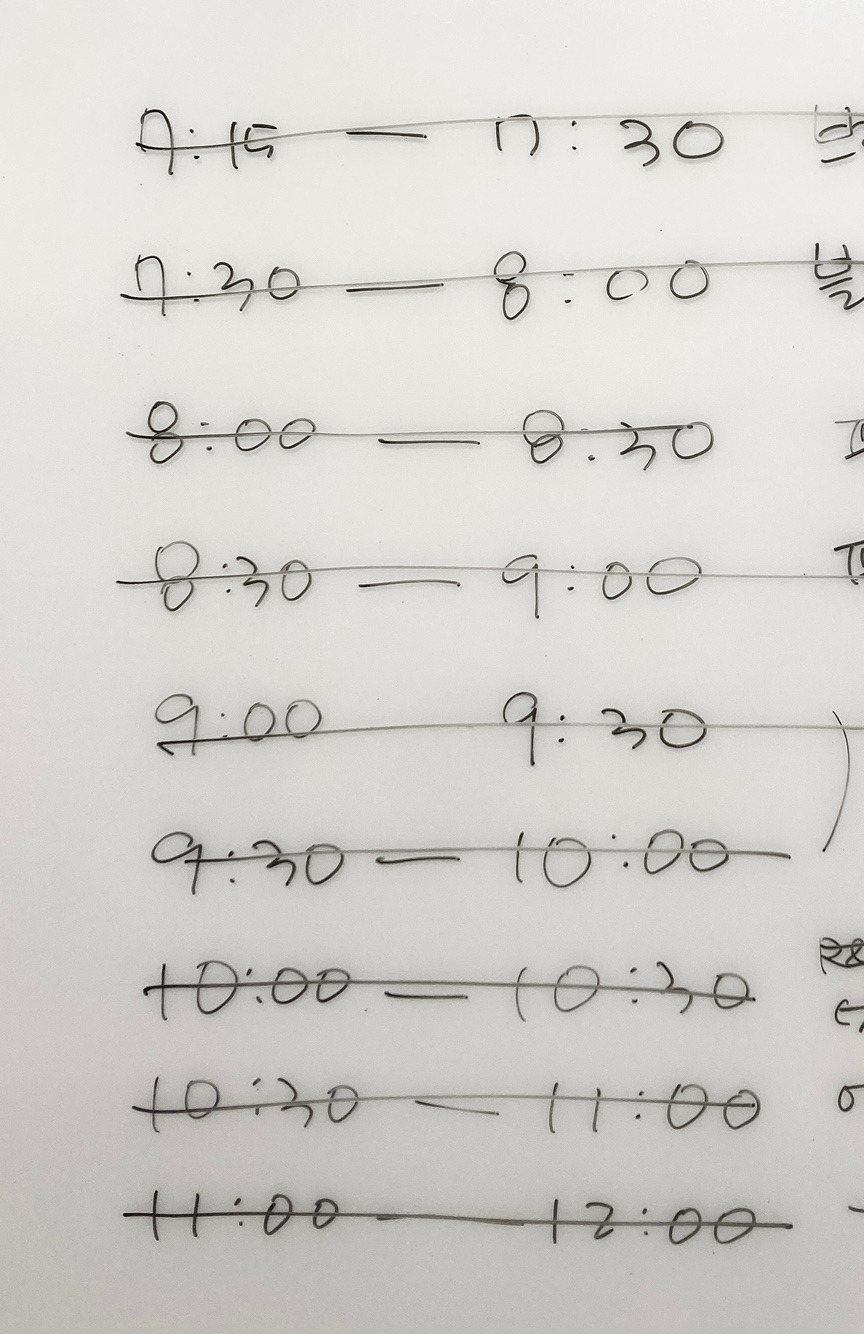 7:15 — 7:30
7:30 — 8:00
8:00 — 8:30
8:30 — 9:00
9:00 9:30
9:30 — 10:00
10:00 — 10:30
10:30 — 11:00
11:00 — 12:00